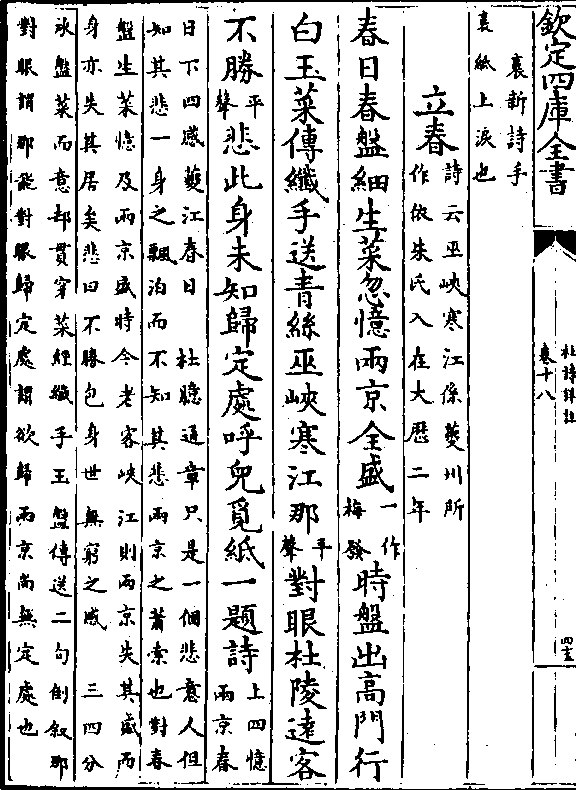 欽定四庫全書
杜詩詳註
卷十八
裛新詩手
裛紙上淚也
立春詩云巫峽寒江係夔州所
作依朱氏入在大歷二年
春日春盤細生菜忽憶兩京全盛一作梅發時盤出高門行
白玉菜傳纖手送青絲巫峽寒江那平聲對眼杜陵遠客
不勝平聲悲此身未知歸定處呼兒覓紙一題詩上四憶
兩京春
日下四感夔江春日 杜臆通章只是一個悲意人但
知其悲一身之飄泊而不知其悲兩京之蕭索也對春
盤生菜憶及兩京盛時今老客峽江則兩京失其盛而
身亦失其居矣悲曰不勝包身世無窮之感 三四分
承盤菜而意却貫穿菜經纖手玉盤傳送二句倒叙那
對眼謂那能對眼歸定處謂欲歸兩京尚無定處也